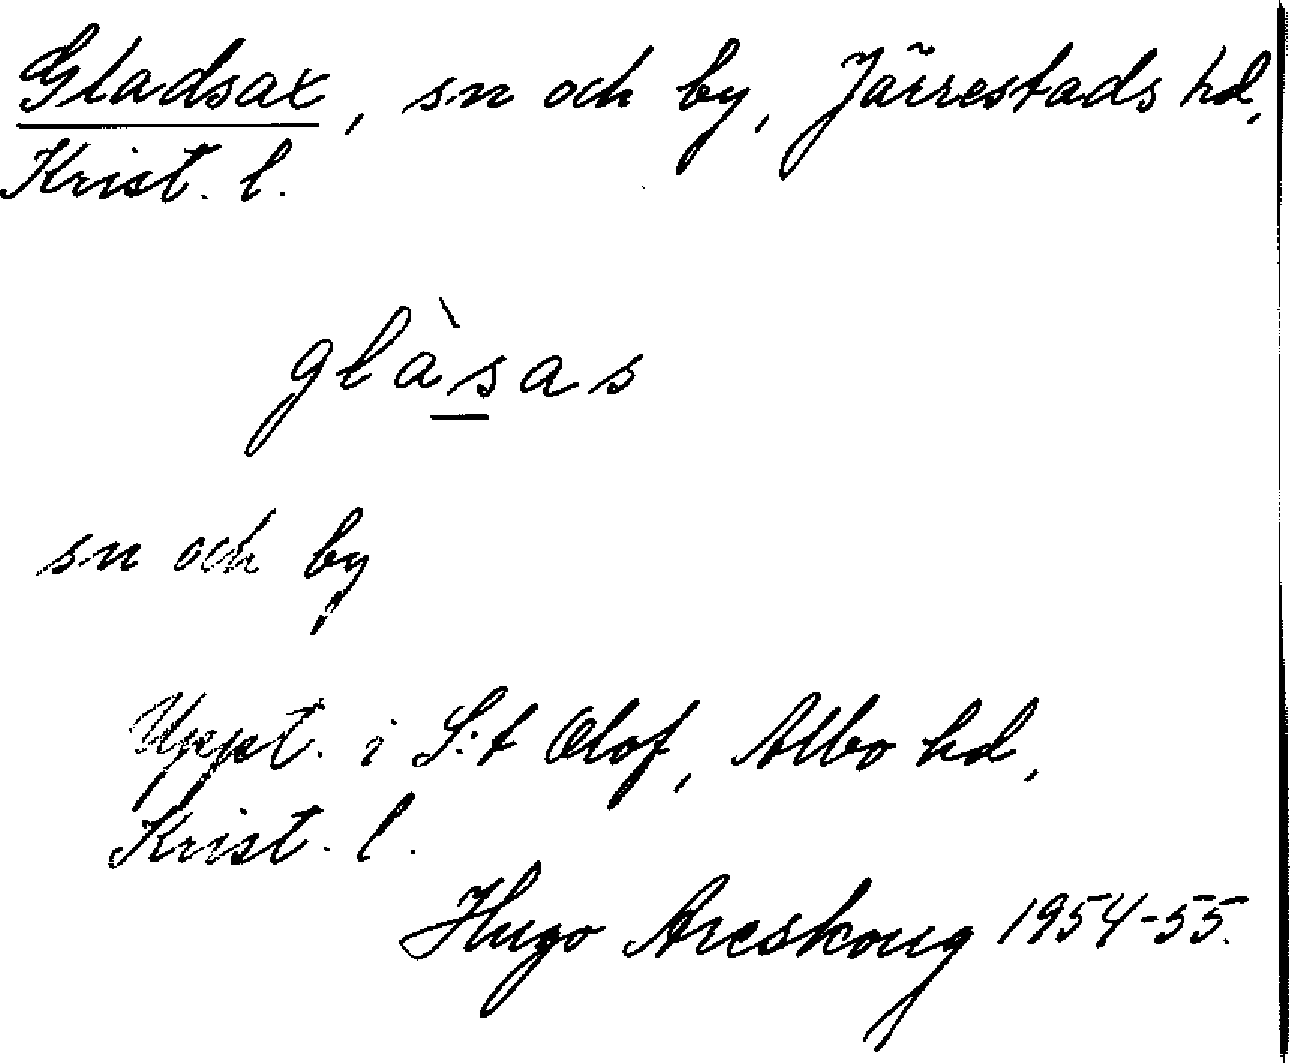 Gladsax, sn och by, Järrestads hd,
Krist. l.
glàsas
sn och by
Uppt. i S:t Olof, Albo hd,
Krist. l.
Hugo Areskoug 1954-55.